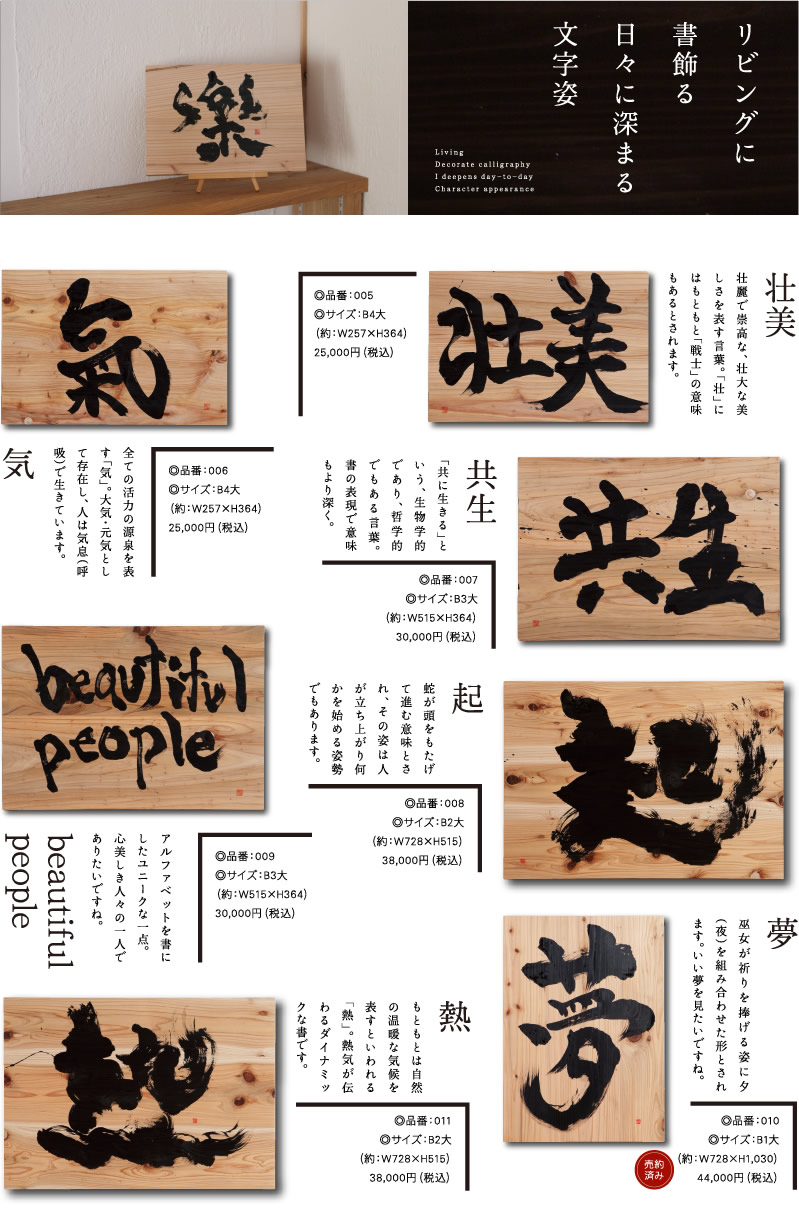 樂
リビングに
書飾る
日々に深まる
文字姿
Living
Decorate calligraphy
I deepens day-to-day
Character appearance
壮美
壮美
壮麗で崇高な、壮大な美
しさを表す言葉。「壮」に
はもともと「戦士」の意味
もあるとされます。
◎品番：005
◎サイズ：B4大
（約：W257×H364）
25,000円（税込）
氣
気
全ての活力の源泉を表
す「気」。大気・元気とし
て存在し、人は気息（呼
吸）で生きています。
◎品番：006
◎サイズ：B4大
（約：W257×H364）
25,000円（税込）
共生
共生
「共に生きる」と
いう、生物学的
であり、哲学的
でもある言葉。
書の表現で意味
もより深く。
◎品番：007
◎サイズ：B3大
（約：W515×H364）
30,000円（税込）
起
起
蛇が頭をもたげ
て進む意味とさ
れ、その姿は人
が立ち上がり何
かを始める姿勢
でもあります。
◎品番：008
◎サイズ：B2大
（約：W728×H515）
38,000円（税込）
beautiful
people
beautiful
people
アルファベットを書に
したユニークな一点。
心美しき人々の一人で
ありたいですね。
◎品番：009
◎サイズ：B3大
（約：W515×H364）
30,000円（税込）
夢
夢
巫女が祈りを捧げる姿に夕
（夜）を組み合わせた形とされ
ます。いい夢を見たいですね。
◎品番：010
◎サイズ：B1大
（約：W728×H1,030）
44,000円（税込）
売約
済み
熱
熱
もともとは自然
の温暖な気候を
表すといわれる
「熱」。熱気が伝
わるダイナミッ
クな書です。
◎品番：011
◎サイズ：B2大
（約：W728×H515）
38,000円（税込）